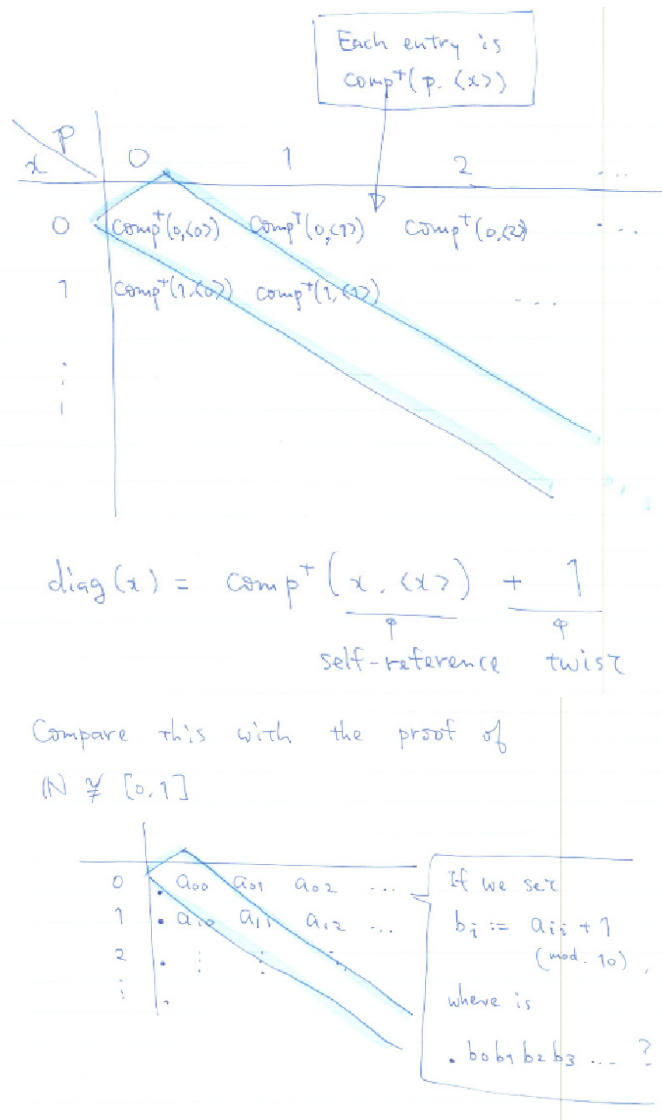 Each entry is
comp⁺(p, <x>)
p
x 0 1 2 ...
0 comp⁺(0,<0>) comp⁺(0,<1>) comp⁺(0,<2>) ...
1 comp⁺(1,<0>) comp⁺(1,<1>) ...
⋮
diag(x) = comp⁺(x, <x>) + 1
self-reference twist
Compare this with the proof of
ℕ ≇ [0,1]
0 . a00 a01 a02 ...
1 . a10 a11 a12 ...
2 . ⋮ ⋮ ⋮
⋮ .
If we set
bi := aii + 1
(mod. 10),
where is
. b0b1b2b3 ... ?